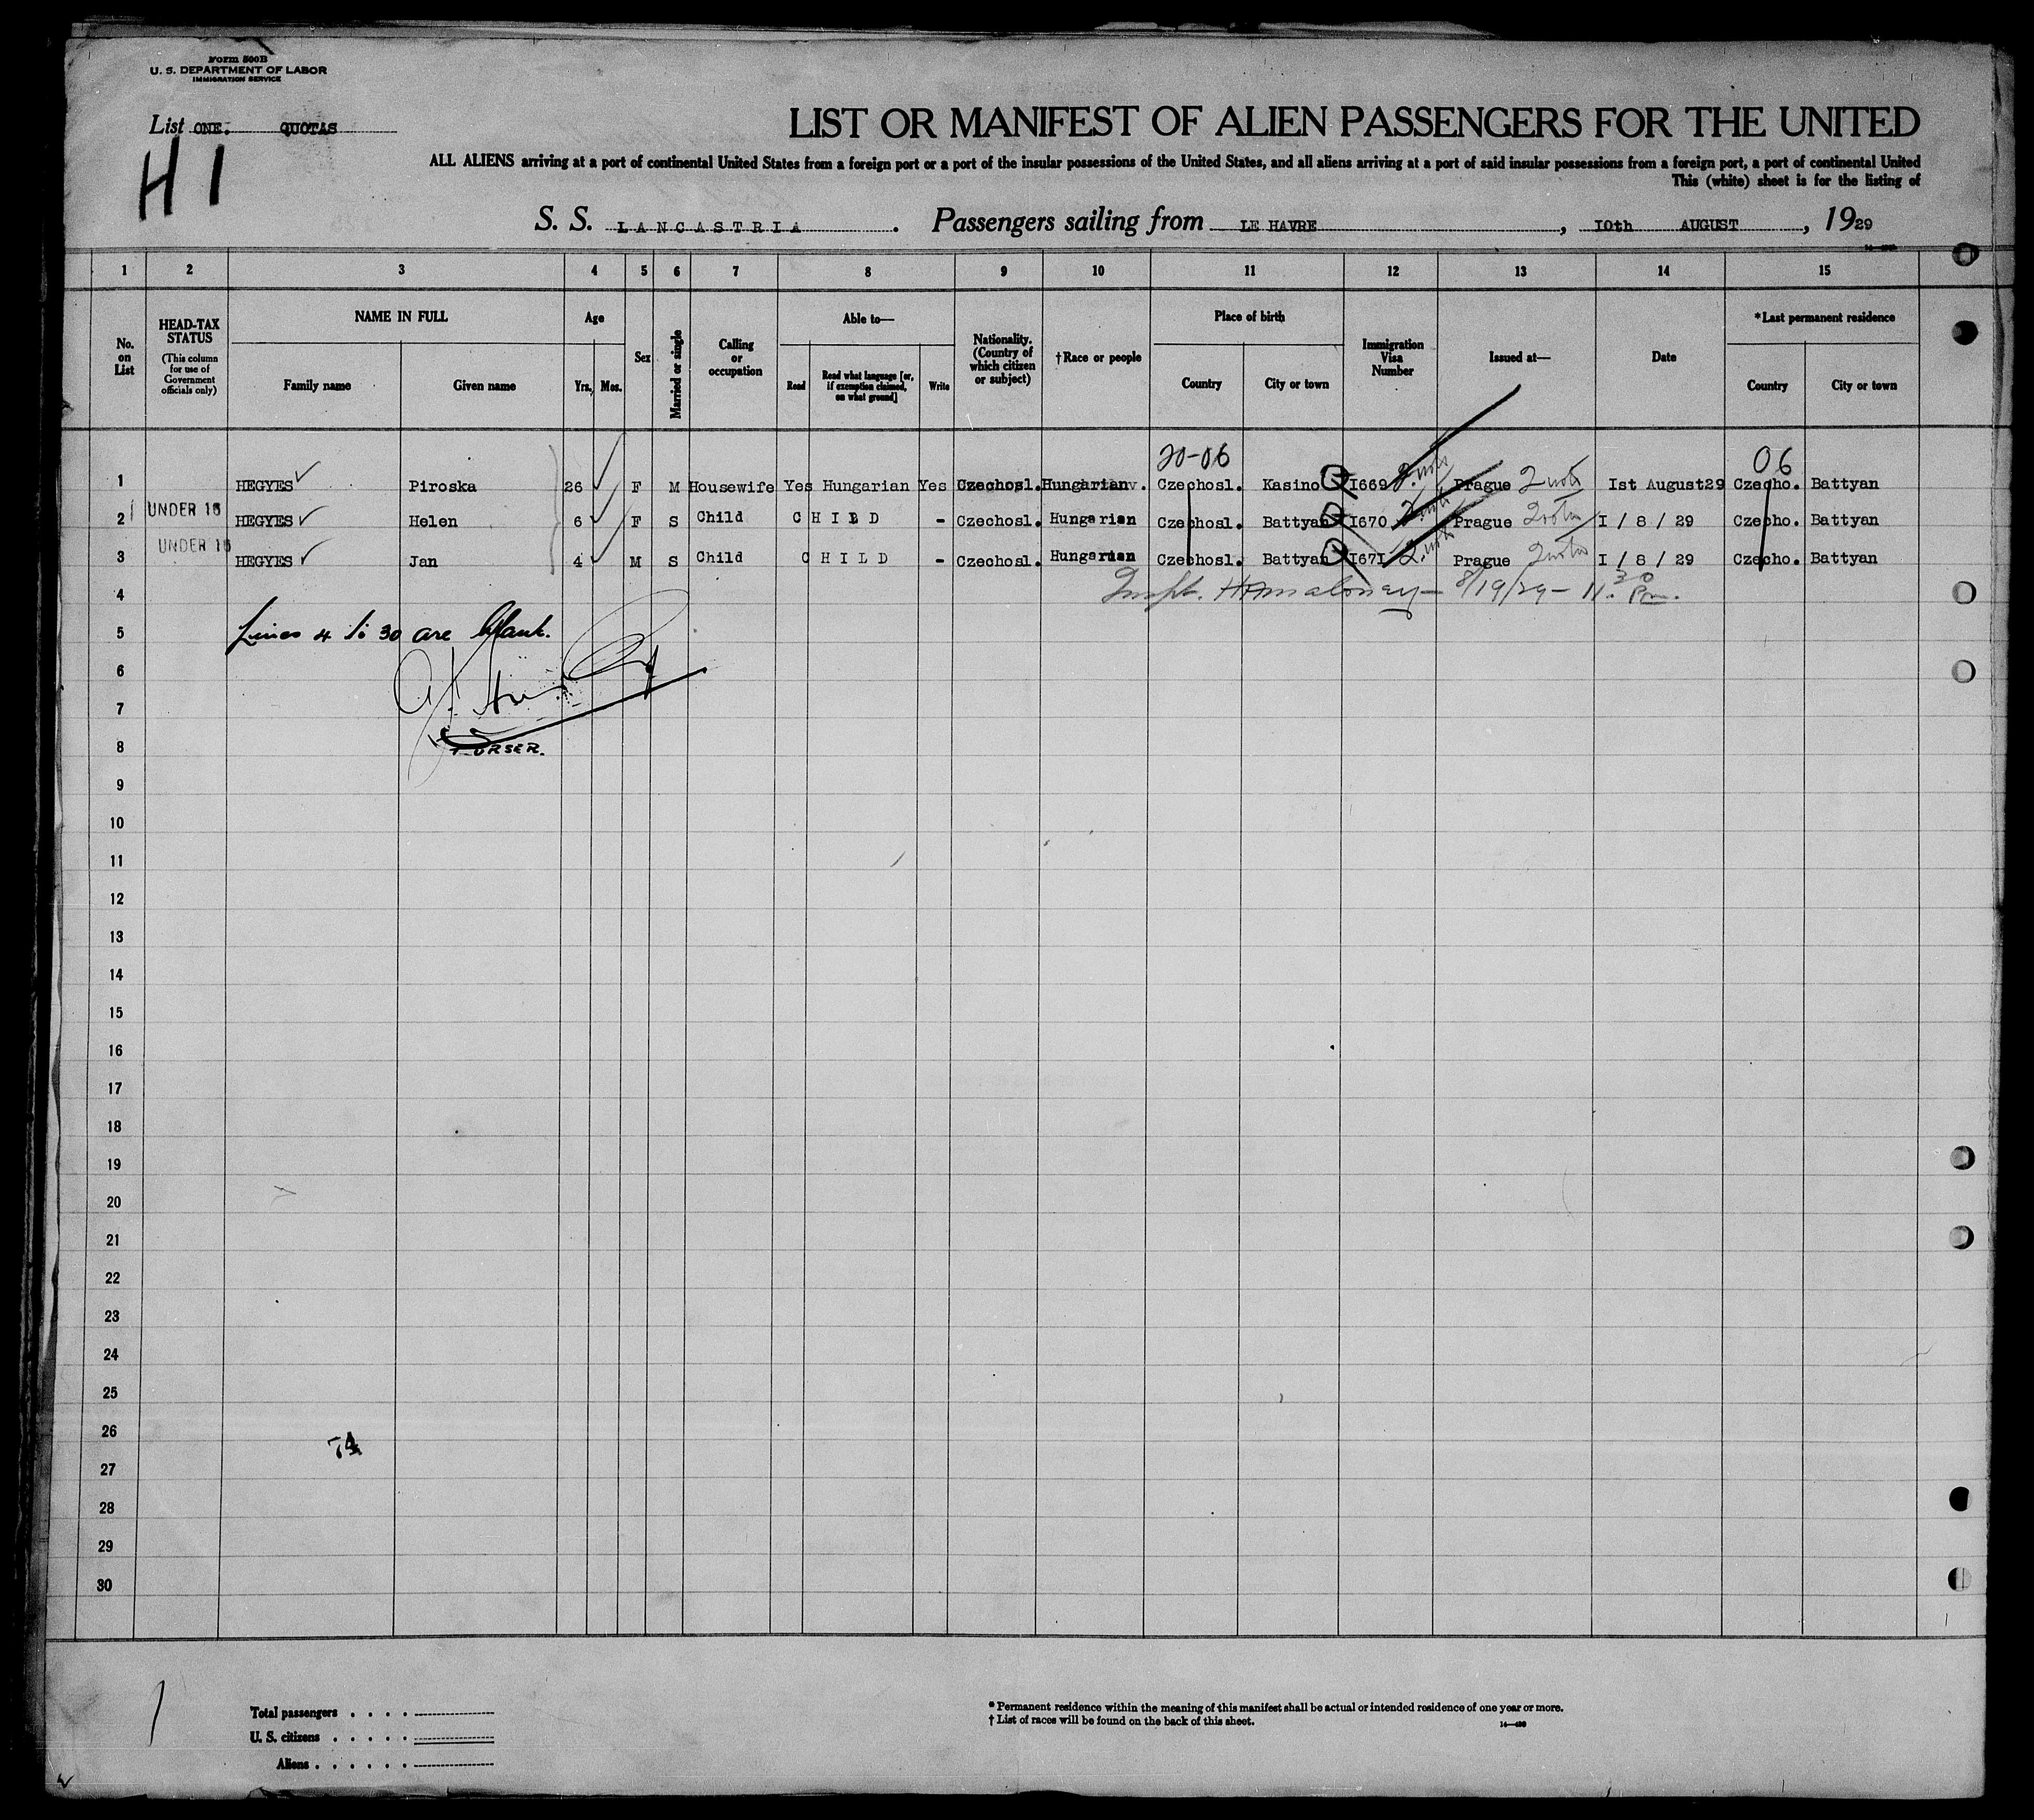 Form 500B
U. S. DEPARTMENT OF LABOR
IMMIGRATION SERVICE
List ONE. QUOTAS
H 1
LIST OR MANIFEST OF ALIEN PASSENGERS FOR THE UNITED
ALL ALIENS arriving at a port of continental United States from a foreign port or a port of the insular possessions of the United States, and all aliens arriving at a port of said insular possessions from a foreign port, a port of continental United
This (white) sheet is for the listing of
S. S. LANCASTRIA. Passengers sailing from LE HAVRE, 10th AUGUST, 1929
1 2 3 4 5 6 7 8 9 10 11 12 13 14 15
No. on List
HEAD-TAX STATUS (This column for use of Government officials only)
NAME IN FULL
Family name Given name
Age
Yrs. Mos.
Sex
Married or single
Calling or occupation
Able to—
Read Read what language [or, if exemption claimed, on what ground] Write
Nationality. (Country of which citizen or subject)
†Race or people
Place of birth
Country City or town
Immigration Visa Number
Issued at—
Date
*Last permanent residence
Country City or town
20-06 06
1 HEGYES Piroska 26 F M Housewife Yes Hungarian Yes Czechosl. Hungarian Czechosl. Kasino Q I669 Prague Quota Ist August29 Czecho. Battyan
2 UNDER 16 HEGYES Helen 6 F S Child CHILD - Czechosl. Hungarian Czechosl. Battyan Q I670 Prague Quota I / 8 / 29 Czecho. Battyan
3 UNDER 16 HEGYES Jan 4 M S Child CHILD - Czechosl. Hungarian Czechosl. Battyan Q I671 Prague Quota I / 8 / 29 Czecho. Battyan
4 Inspt. 8/19/29 – 11.30 Pm.
5 Lines 4 to 30 are blank.
6
7
8 PURSER.
9
10
11
12
13
14
15
16
17
18
19
20
21
22
23
24
25
26
74
27
28
29
30
Total passengers
U. S. citizens
Aliens
* Permanent residence within the meaning of this manifest shall be actual or intended residence of one year or more.
† List of races will be found on the back of this sheet.